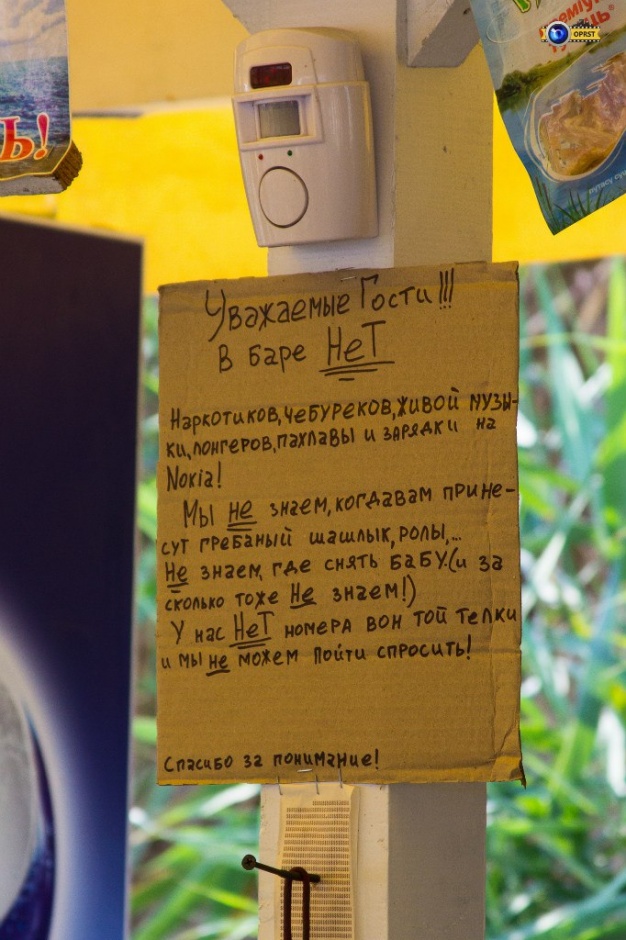 OPRST
Ь!
Уважаемые Гости!!!
В баре НеТ
Наркотиков,чебуреков,живой музы-
ки,лонгеров,пахлавы и зарядки на
Nokia!
Мы не знаем,когдавам прине-
сут гребаный шашлык,ролы,...
Не знаем, где снять бабу.(и за
сколько тоже Не знаем!)
У нас НеТ номера вон той телки
и мы не можем пойти спросить!
Спасибо за понимание!